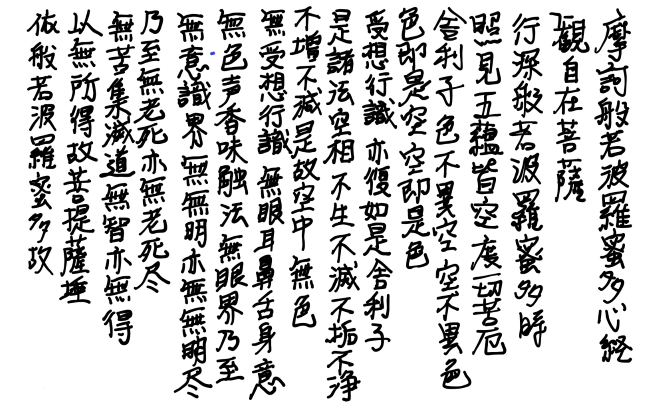 摩訶般若波羅蜜多心経
観自在菩薩
行深般若波羅蜜多時
照見五蘊皆空度一切苦厄
舎利子色不異空空不異色
色即是空空即是色
受想行識亦復如是舎利子
是諸法空相不生不滅不垢不浄
不増不減是故空中無色
無受想行識無眼耳鼻舌身意
無色声香味触法無眼界乃至
無意識界無無明亦無無明尽
乃至無老死亦無老死尽
無苦集滅道無智亦無得
以無所得故菩提薩埵
依般若波羅蜜多故